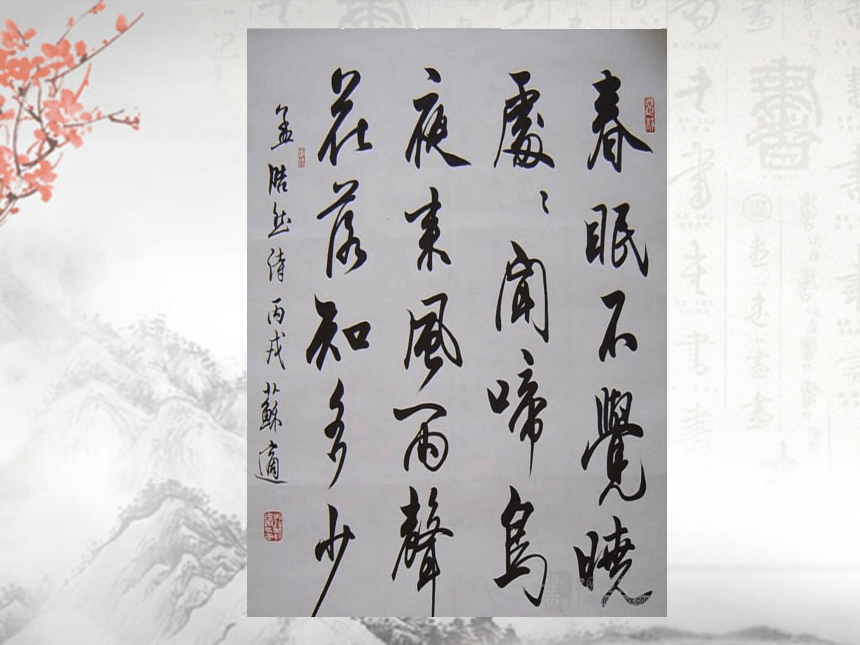 春眠不覺曉
處〻聞啼鳥
夜来風雨聲
花落知多少
孟浩然詩丙戌蘇適